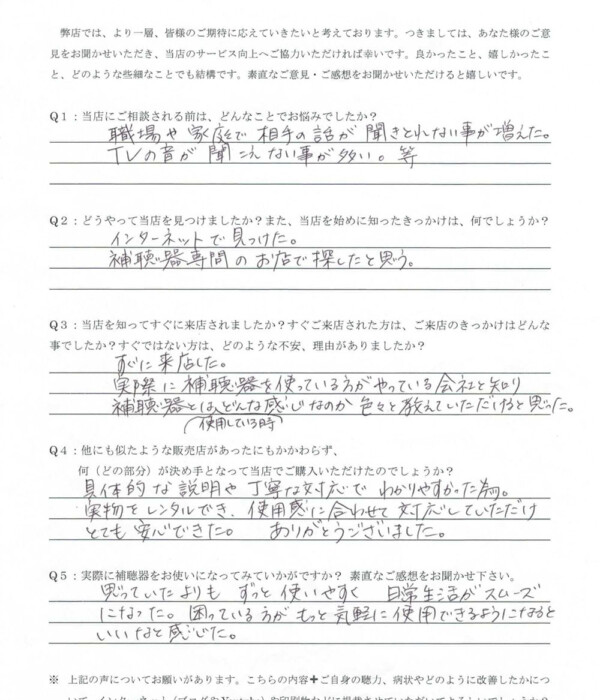 弊店では、より一層、皆様のご期待に応えていきたいと考えております。つきましては、あなた様のご意
見をお聞かせいただき、当店のサービス向上へご協力いただければ幸いです。良かったこと、嬉しかったこ
と、どのような些細なことでも結構です。素直なご意見・ご感想をお聞かせいただけると嬉しいです。
Q1：当店にご相談される前は、どんなことでお悩みでしたか？
職場や家庭で相手の話が聞きとれない事が増えた。
TVの音が聞こえない事が多い。等
Q2：どうやって当店を見つけましたか？また、当店を始めに知ったきっかけは、何でしょうか？
インターネットで見つけた。
補聴器専門のお店で探したと思う。
Q3：当店を知ってすぐに来店されましたか？すぐご来店された方は、ご来店のきっかけはどんな
事でしたか？すぐではない方は、どのような不安、理由がありましたか？
すぐに来店した。
実際に補聴器を使っている方がやっている会社と知り
補聴器とは、どんな感じなのか色々と教えていただけると思った。
（使用している時）
Q4：他にも似たような販売店があったにもかかわらず、
何（どの部分）が決め手となって当店でご購入いただけたのでしょうか？
具体的な説明や丁寧な対応でわかりやすかった為。
実物をレンタルでき、使用感に合わせて対応していただけ
とても安心できた。 ありがとうございました。
Q5：実際に補聴器をお使いになってみていかがですか？ 素直なご感想をお聞かせ下さい。
思っていたよりも ずっと使いやすく 日常生活がスムーズ
になった。困っている方がもっと気軽に使用できるようになると
いいなと感じた。
※ 上記の声についてお願いがあります。こちらの内容＋ご自身の聴力、病状やどのように改善したかにつ